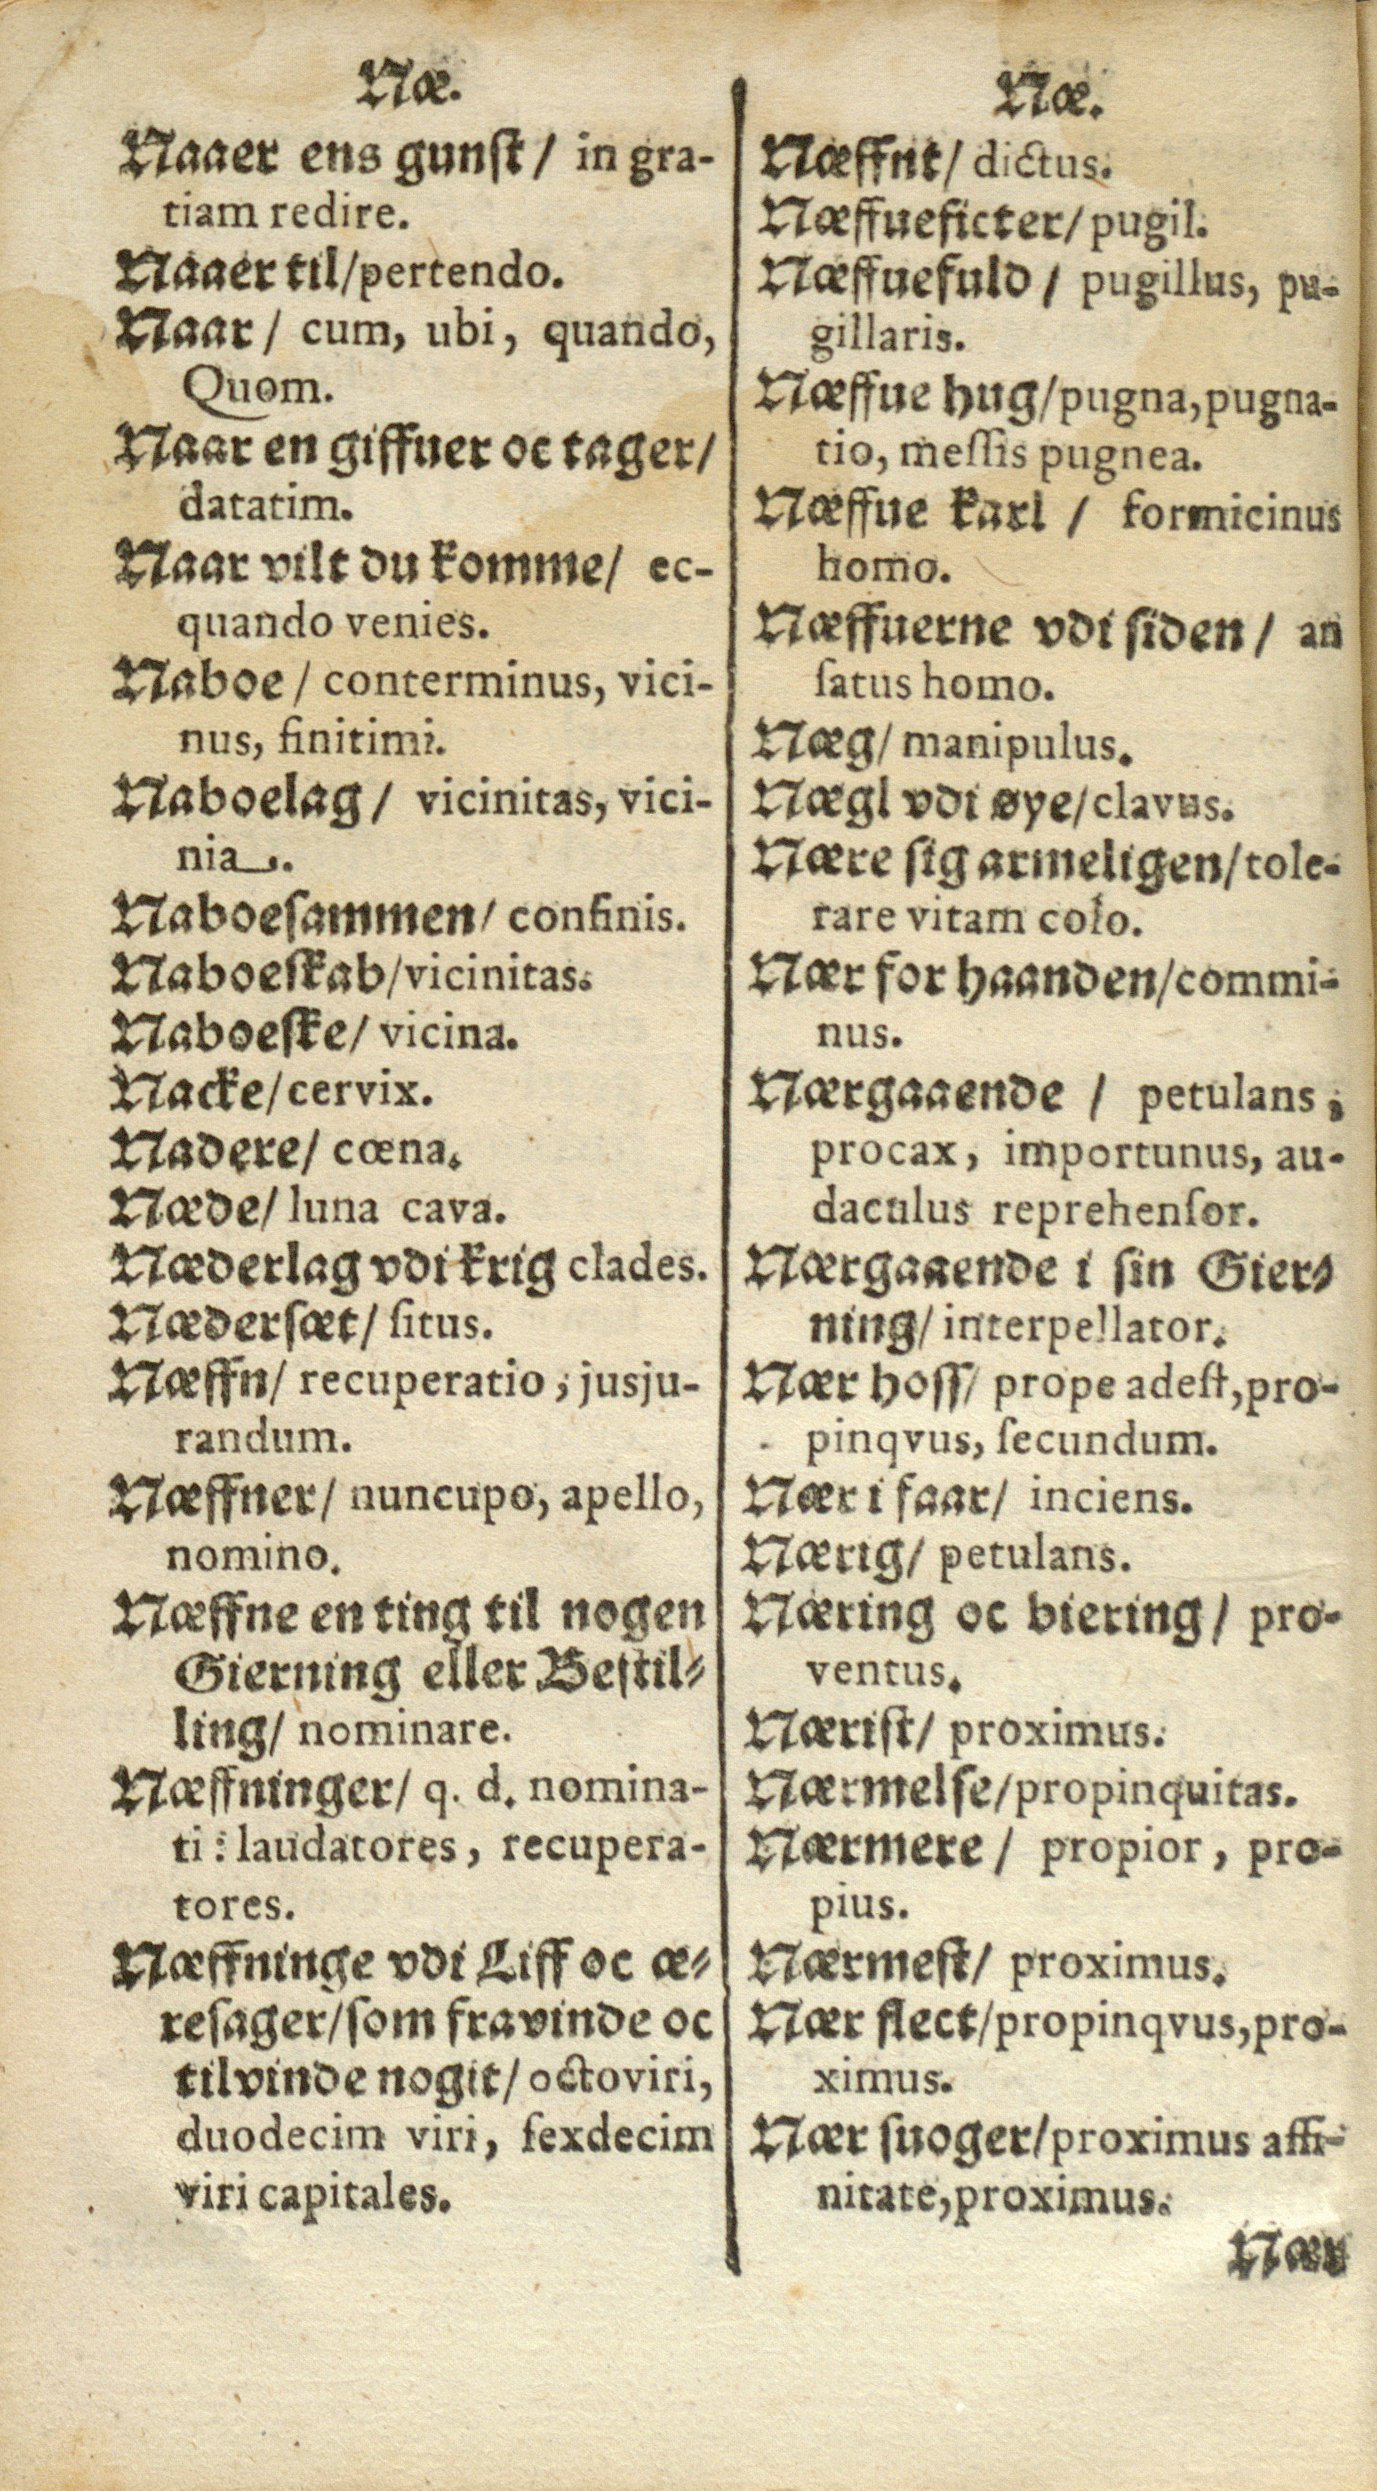 Næ.
Naaer ens gunſt/ in gra-
tiam redire.
Naaer til/pertendo.
Naar/ cum, ubi, quando,
Quom.
Naar en giffuer oc tager/
datatim.
Naar vilt du komme/ ec-
quando venies.
Naboe/ conterminus, vici-
nus, finitimi.
Naboelag/ vicinitas, vici-
nia.
Naboeſammen/ confinis.
Naboeſkab/vicinitas.
Naboeſke/ vicina.
Nacke/cervix.
Nadere/ cœna.
Næde/ luna cava.
Næderlag vdi krig clades.
Næderſæt/ ſitus.
Næffn/ recuperatio, jusju-
randum.
Næffner/ nuncupo, apello,
nomino.
Næffne en ting til nogen
Gierning eller Beſtil-
ling/ nominare.
Næffninger/ q. d. nomina-
ti: laudatores, recupera-
tores.
Næffninge vdi Liff oc æ-
reſager/ſom fravinde oc
tilvinde nogit/ octoviri,
duodecim viri, ſexdecim
viri capitales.
Næ.
Næffnt/ dictus.
Næffueficter/ pugil.
Næffuefuld/ pugillus, pu-
gillaris.
Næffue hug/pugna, pugna-
tio, meſſis pugnea.
Næffue karl/ formicinus
homo.
Næffuerne vdi ſiden/ an
ſatus homo.
Næg/ manipulus.
Nægl vdi øye/clavus.
Nære ſig armeligen/tole-
rare vitam colo.
Nær for haanden/commi-
nus.
Nærgaaende/ petulans,
procax, importunus, au-
daculus reprehenſor.
Nærgaaende i ſin Gier-
ning/ interpellator.
Nær hoſſ/ prope adeſt, pro-
pinqvus, ſecundum.
Nær i faar/ inciens.
Nærig/ petulans.
Næring oc biering/ pro-
ventus.
Næriſt/ proximus.
Nærmelſe/propinquitas.
Nærmere/ propior, pro-
pius.
Nærmeſt/ proximus.
Nær ſlect/propinqvus, pro-
ximus.
Nær ſuoger/proximus affi-
nitate, proximus.
Nær